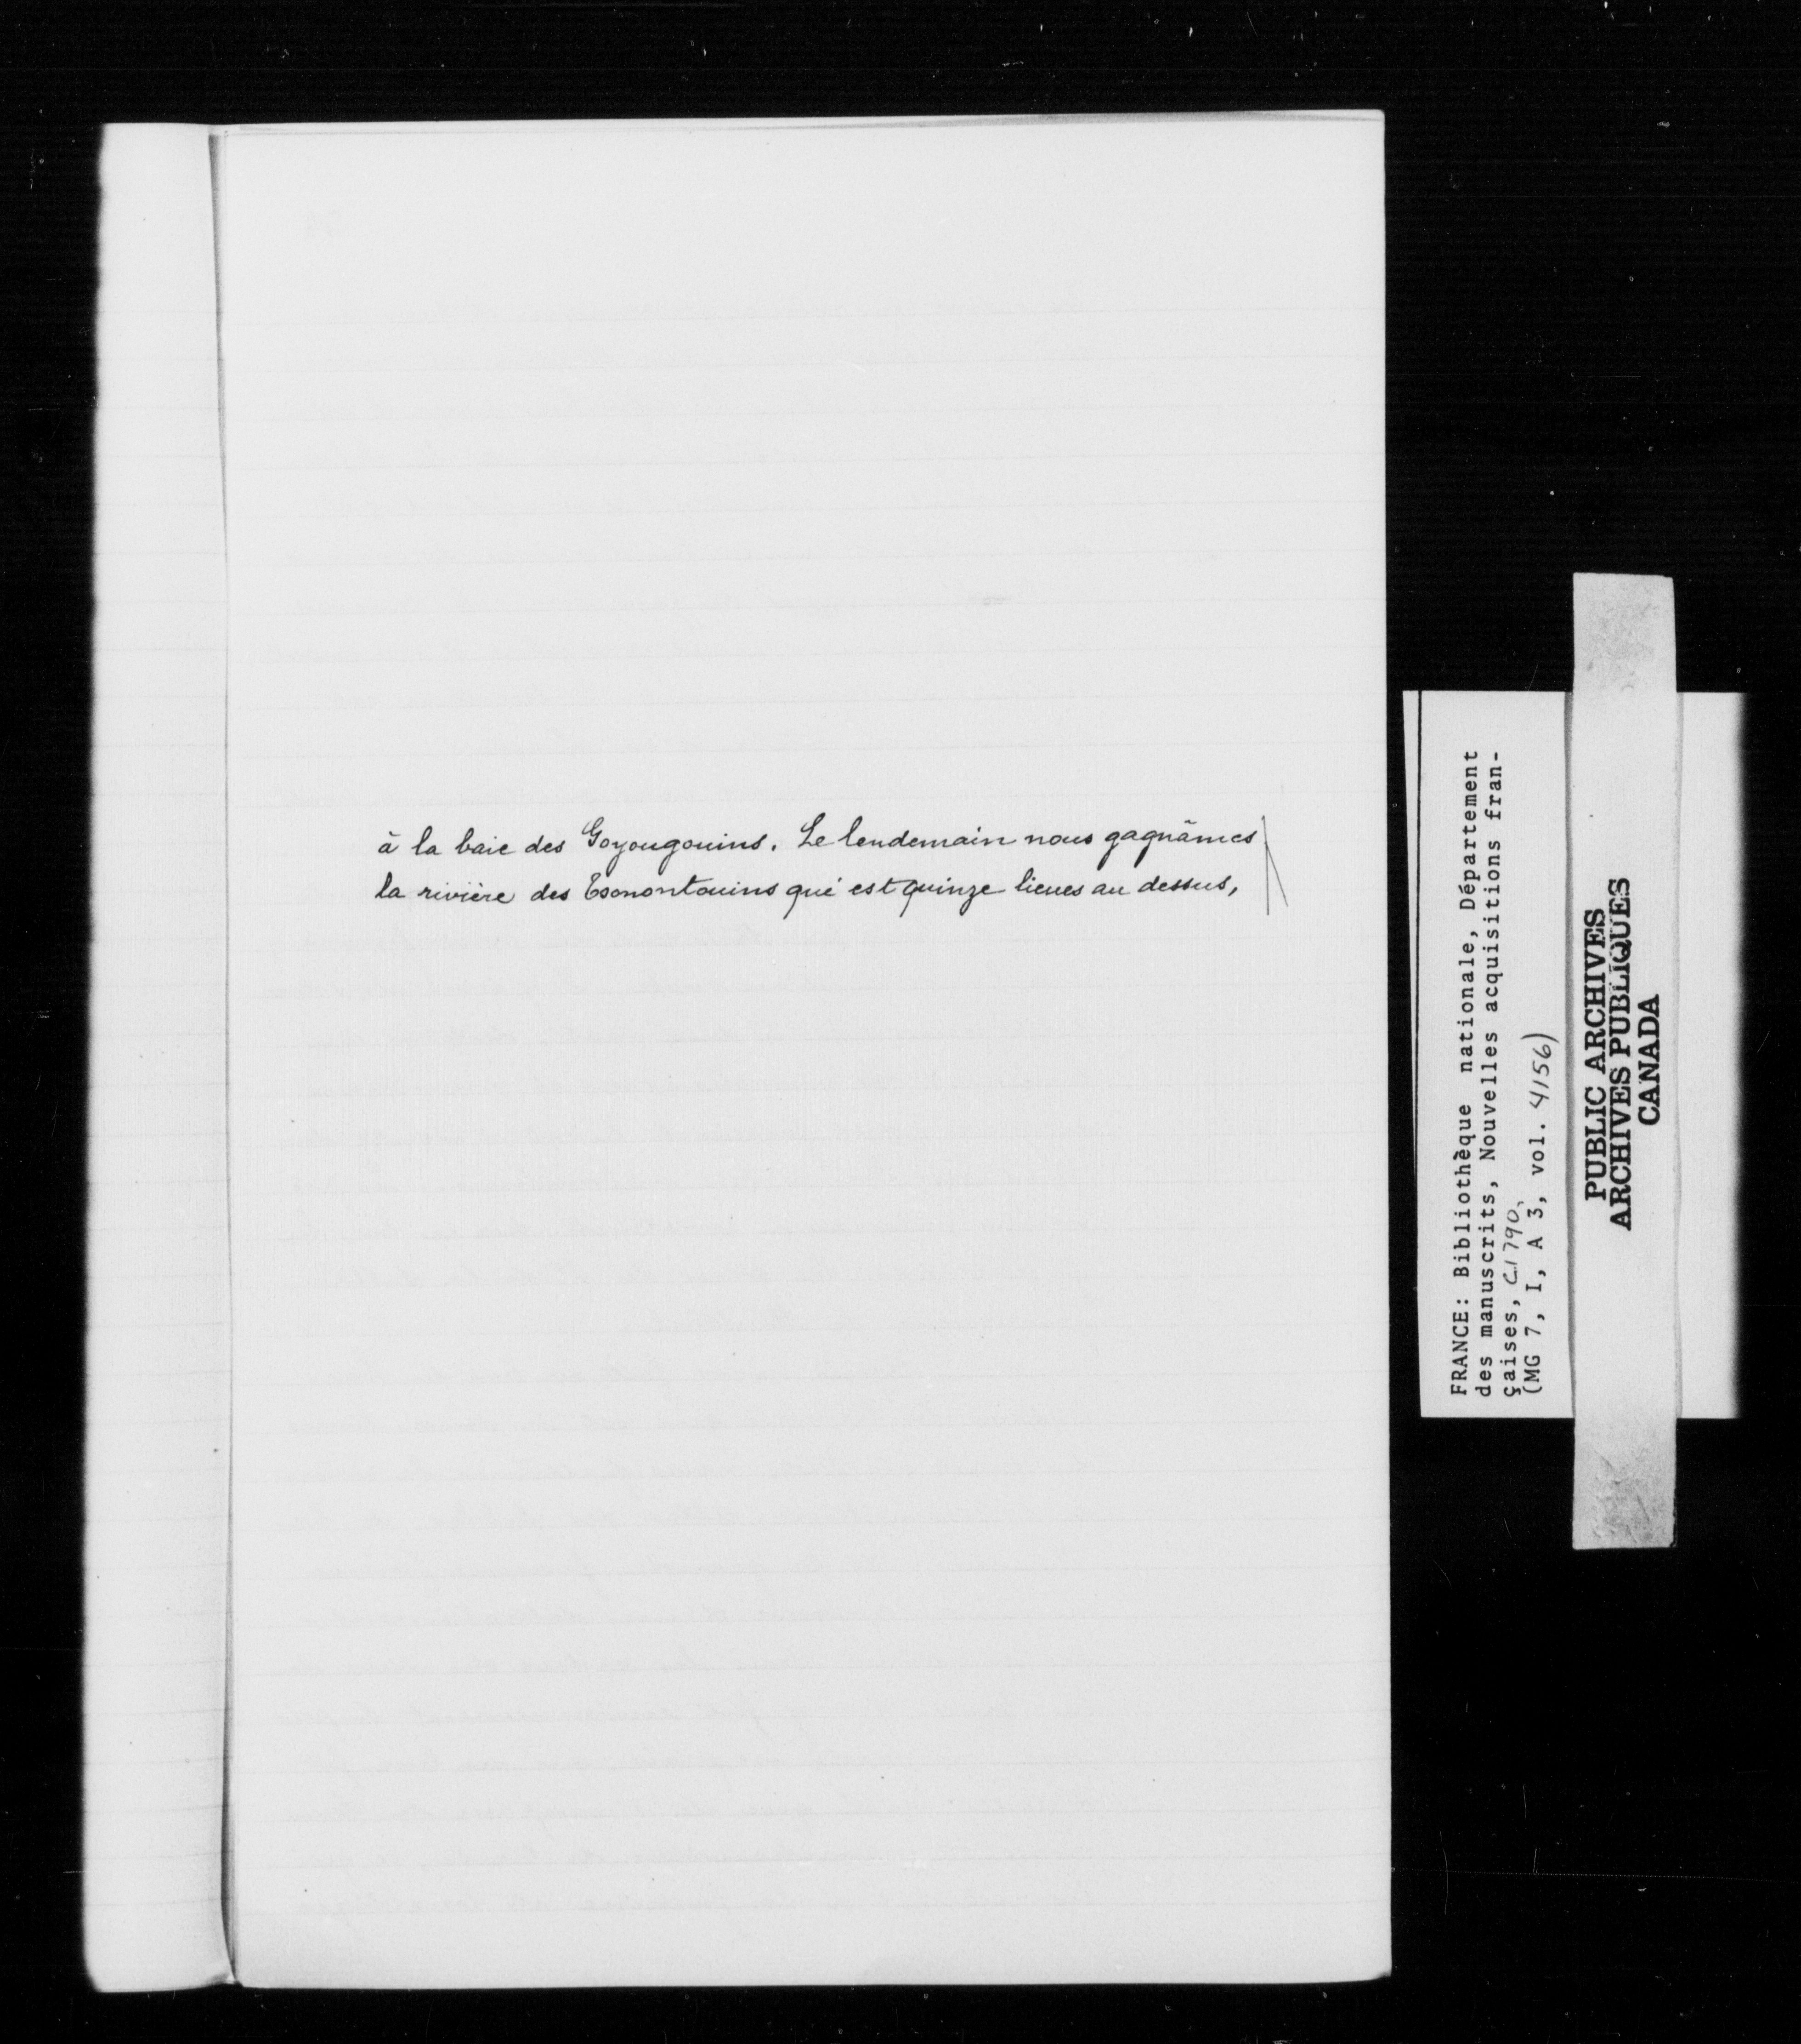 à la baie des Goyougouins. Le lendemain nous gagnâmes
la rivière des Tsonontouins qui est quinze lieues au dessus,
FRANCE: Bibliothèque nationale, Département
des manuscrits, Nouvelles acquisitions fran-
çaises,
(MG 7, I, A 3, vol. 4156)
PUBLIC ARCHIVES
ARCHIVES PUBLIQUES
CANADA